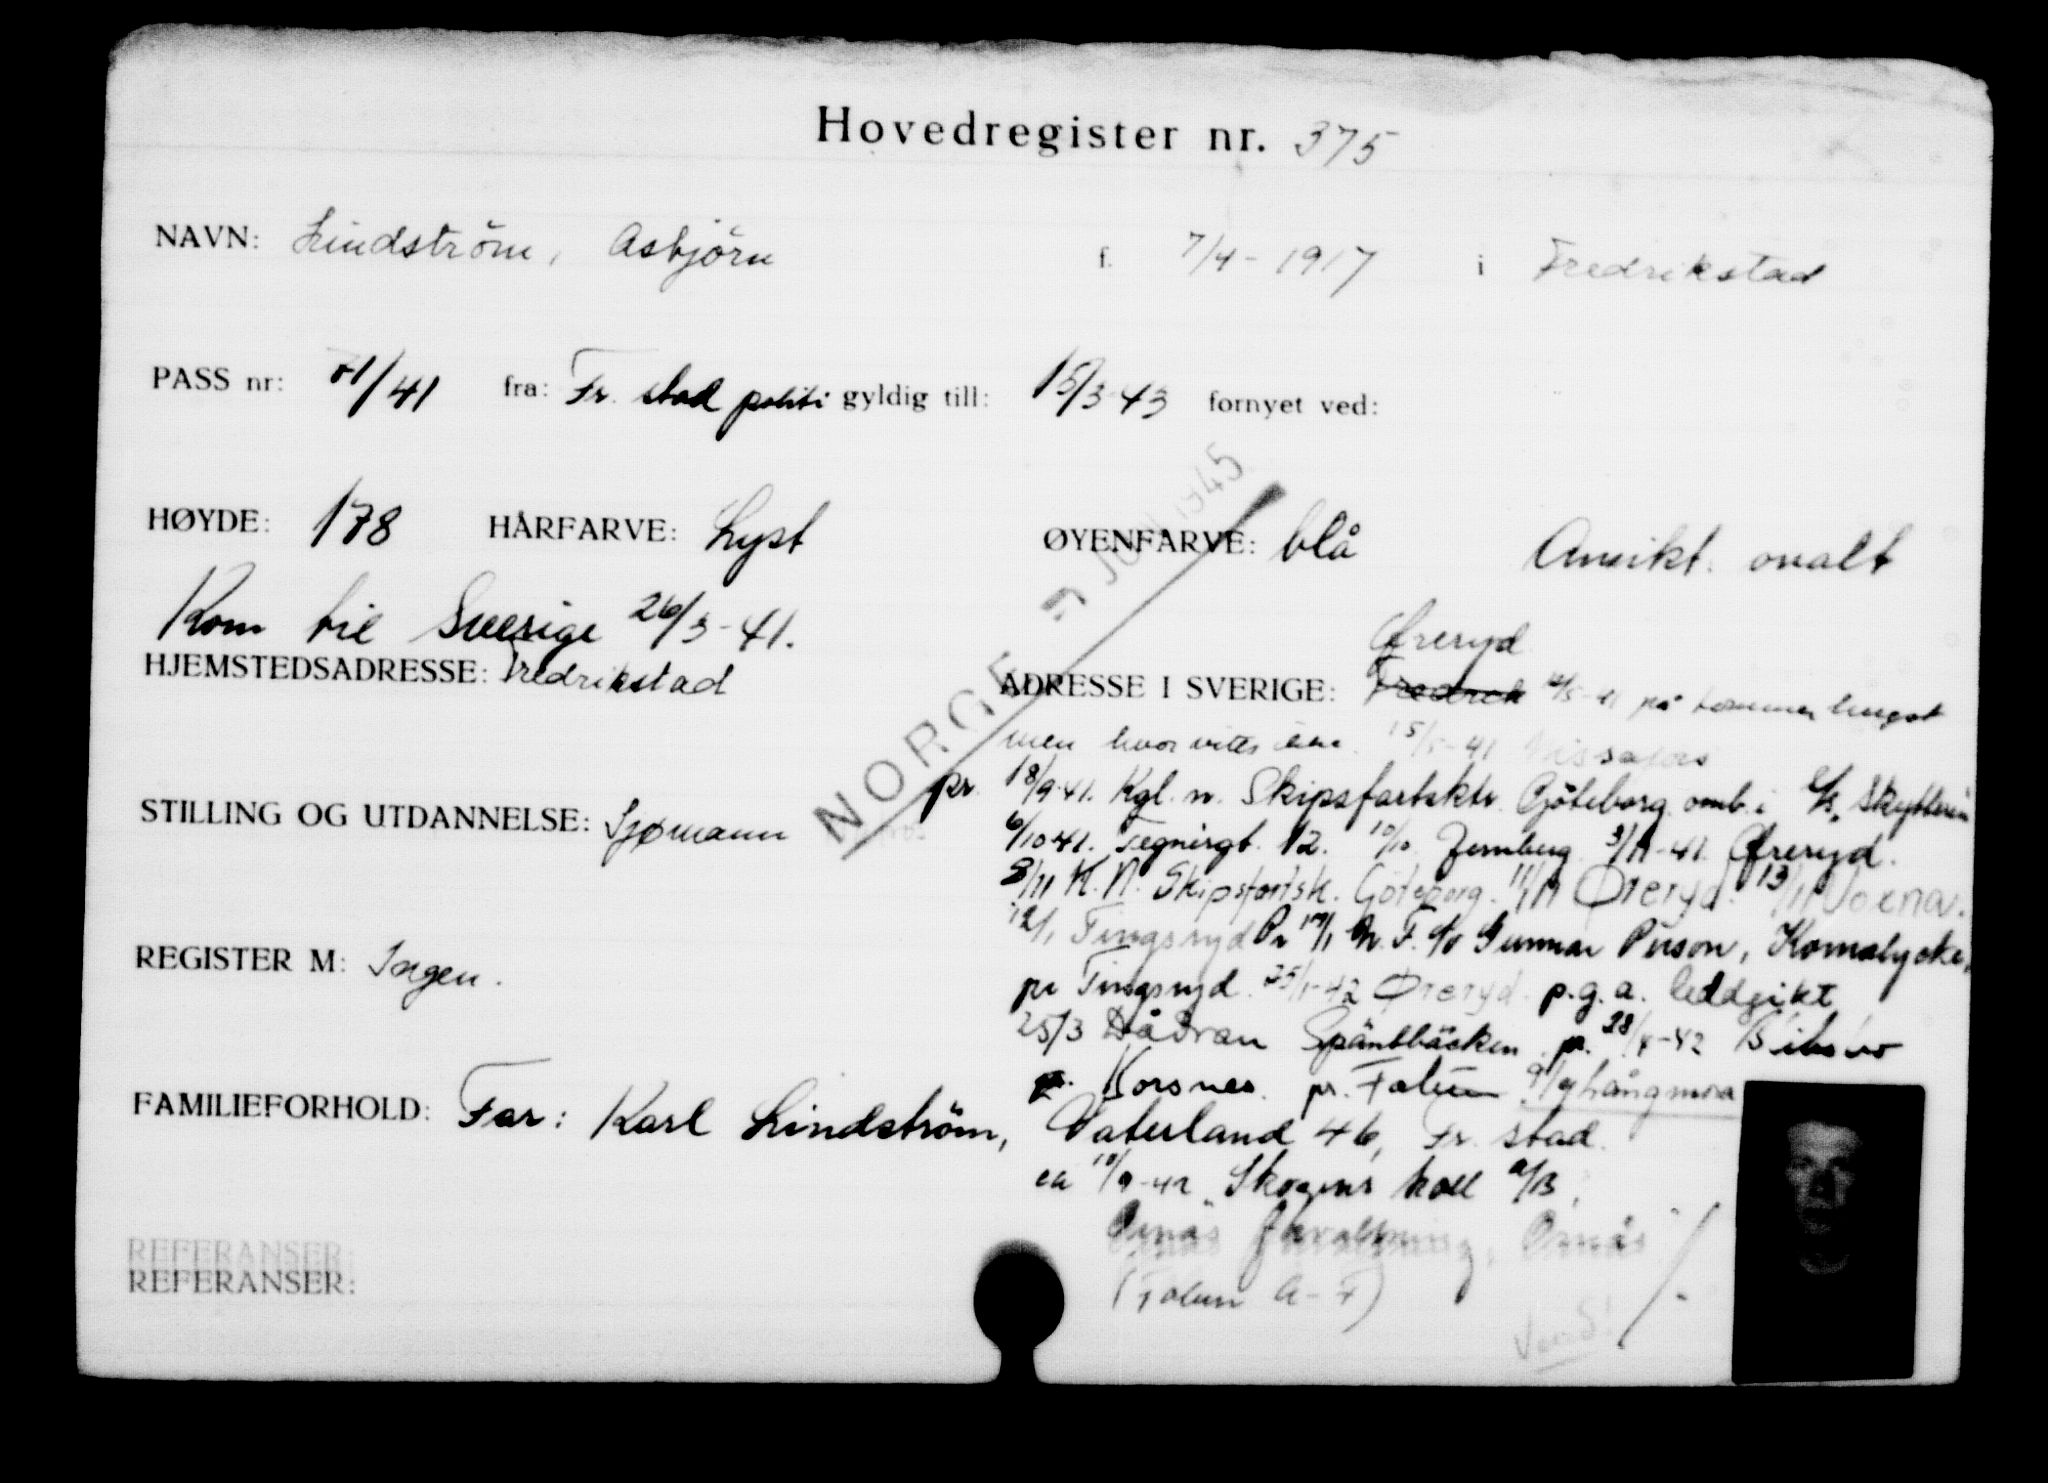 Hovedregister nr. 375
NAVN: Lindström, Asbjörn f. 7/4-1917 i Fredrikstad
PASS nr: 71/41 fra: Fr. stad politi gyldig till: 15/3-43 fornyet ved:
HØYDE: 178 HÅRFARVE: Lyst ØYENFARVE: blå Ansikt: ovalt
Kom til Sverige 26/3-41.
Øreryd
HJEMSTEDSADRESSE: Fredrikstad ADRESSE I SVERIGE: Fredrek /5-41 på tømmerhugst
men hvor vites ikke. 15/5-41 Nissafors
NORGE 7 JUNI 1945
pr. 18/9-41. Kgl. n. Skipsfartsktr. Göteborg omb. i
STILLING OG UTDANNELSE: Sjømann
6/10-41. Tegnérgt. 12. 10/10. Jernberg. 3/11-41. Øreryd.
8/11 K.N. Skipsfartsk. Göteborg. 11/11 Øreryd. 13/11 Voxna.
12/1 Tingsryd Pr 17/1 N.F. c/o Gunnar Person,
REGISTER M: Ingen.
pr Tingsryd. 25/1-42 Øreryd p.g.a. leddgikt
25/3 Dådran Späntbäcken. pr. 28/4-42
pr. Korsnes. pr. Falun 9/9 Långmora
FAMILIEFORHOLD: Far: Karl Lindström, Vaterland 46, Fr. stad.
ca 10/9-42 Skogens koll A/B,
Ornäs förvaltning, Ornäs
(Falun A-F)
Vend!
REFERANSER:
REFERANSER: